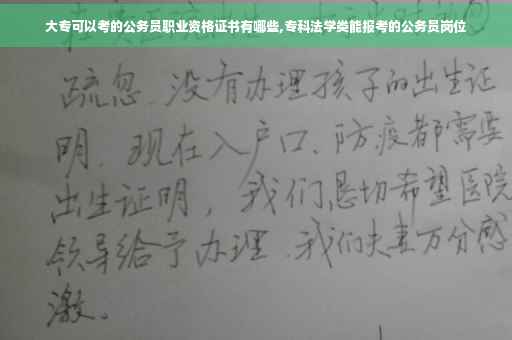 大专可以考的公务员职业资格证书有哪些,专科法学类能报考的公务员岗位
疏忽、没有办理孩子的出生证
明、现在入户口、防疫都需要
出生证明，我们恳切希望医院
领导给予办理、我们夫妻万分感
激。